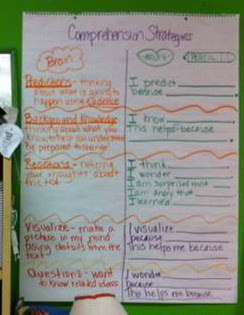 Comprehension Strategies
Brain
Predictions - thinking
about what is going to
happen using evidence
I predict
because
Background Knowledge
thinking about what you
know to help you understand
Be prepared to change
I know
This helps because
Reactions - noticing
your thoughts about
the text
I think
I wonder
I am surprised that
I am angry that
I learned
Visualize - make a
picture in my mind
using details from the
text
I visualize
because
This helps me because
Questions - want
to know related ideas
I wonder
because
This helps me because